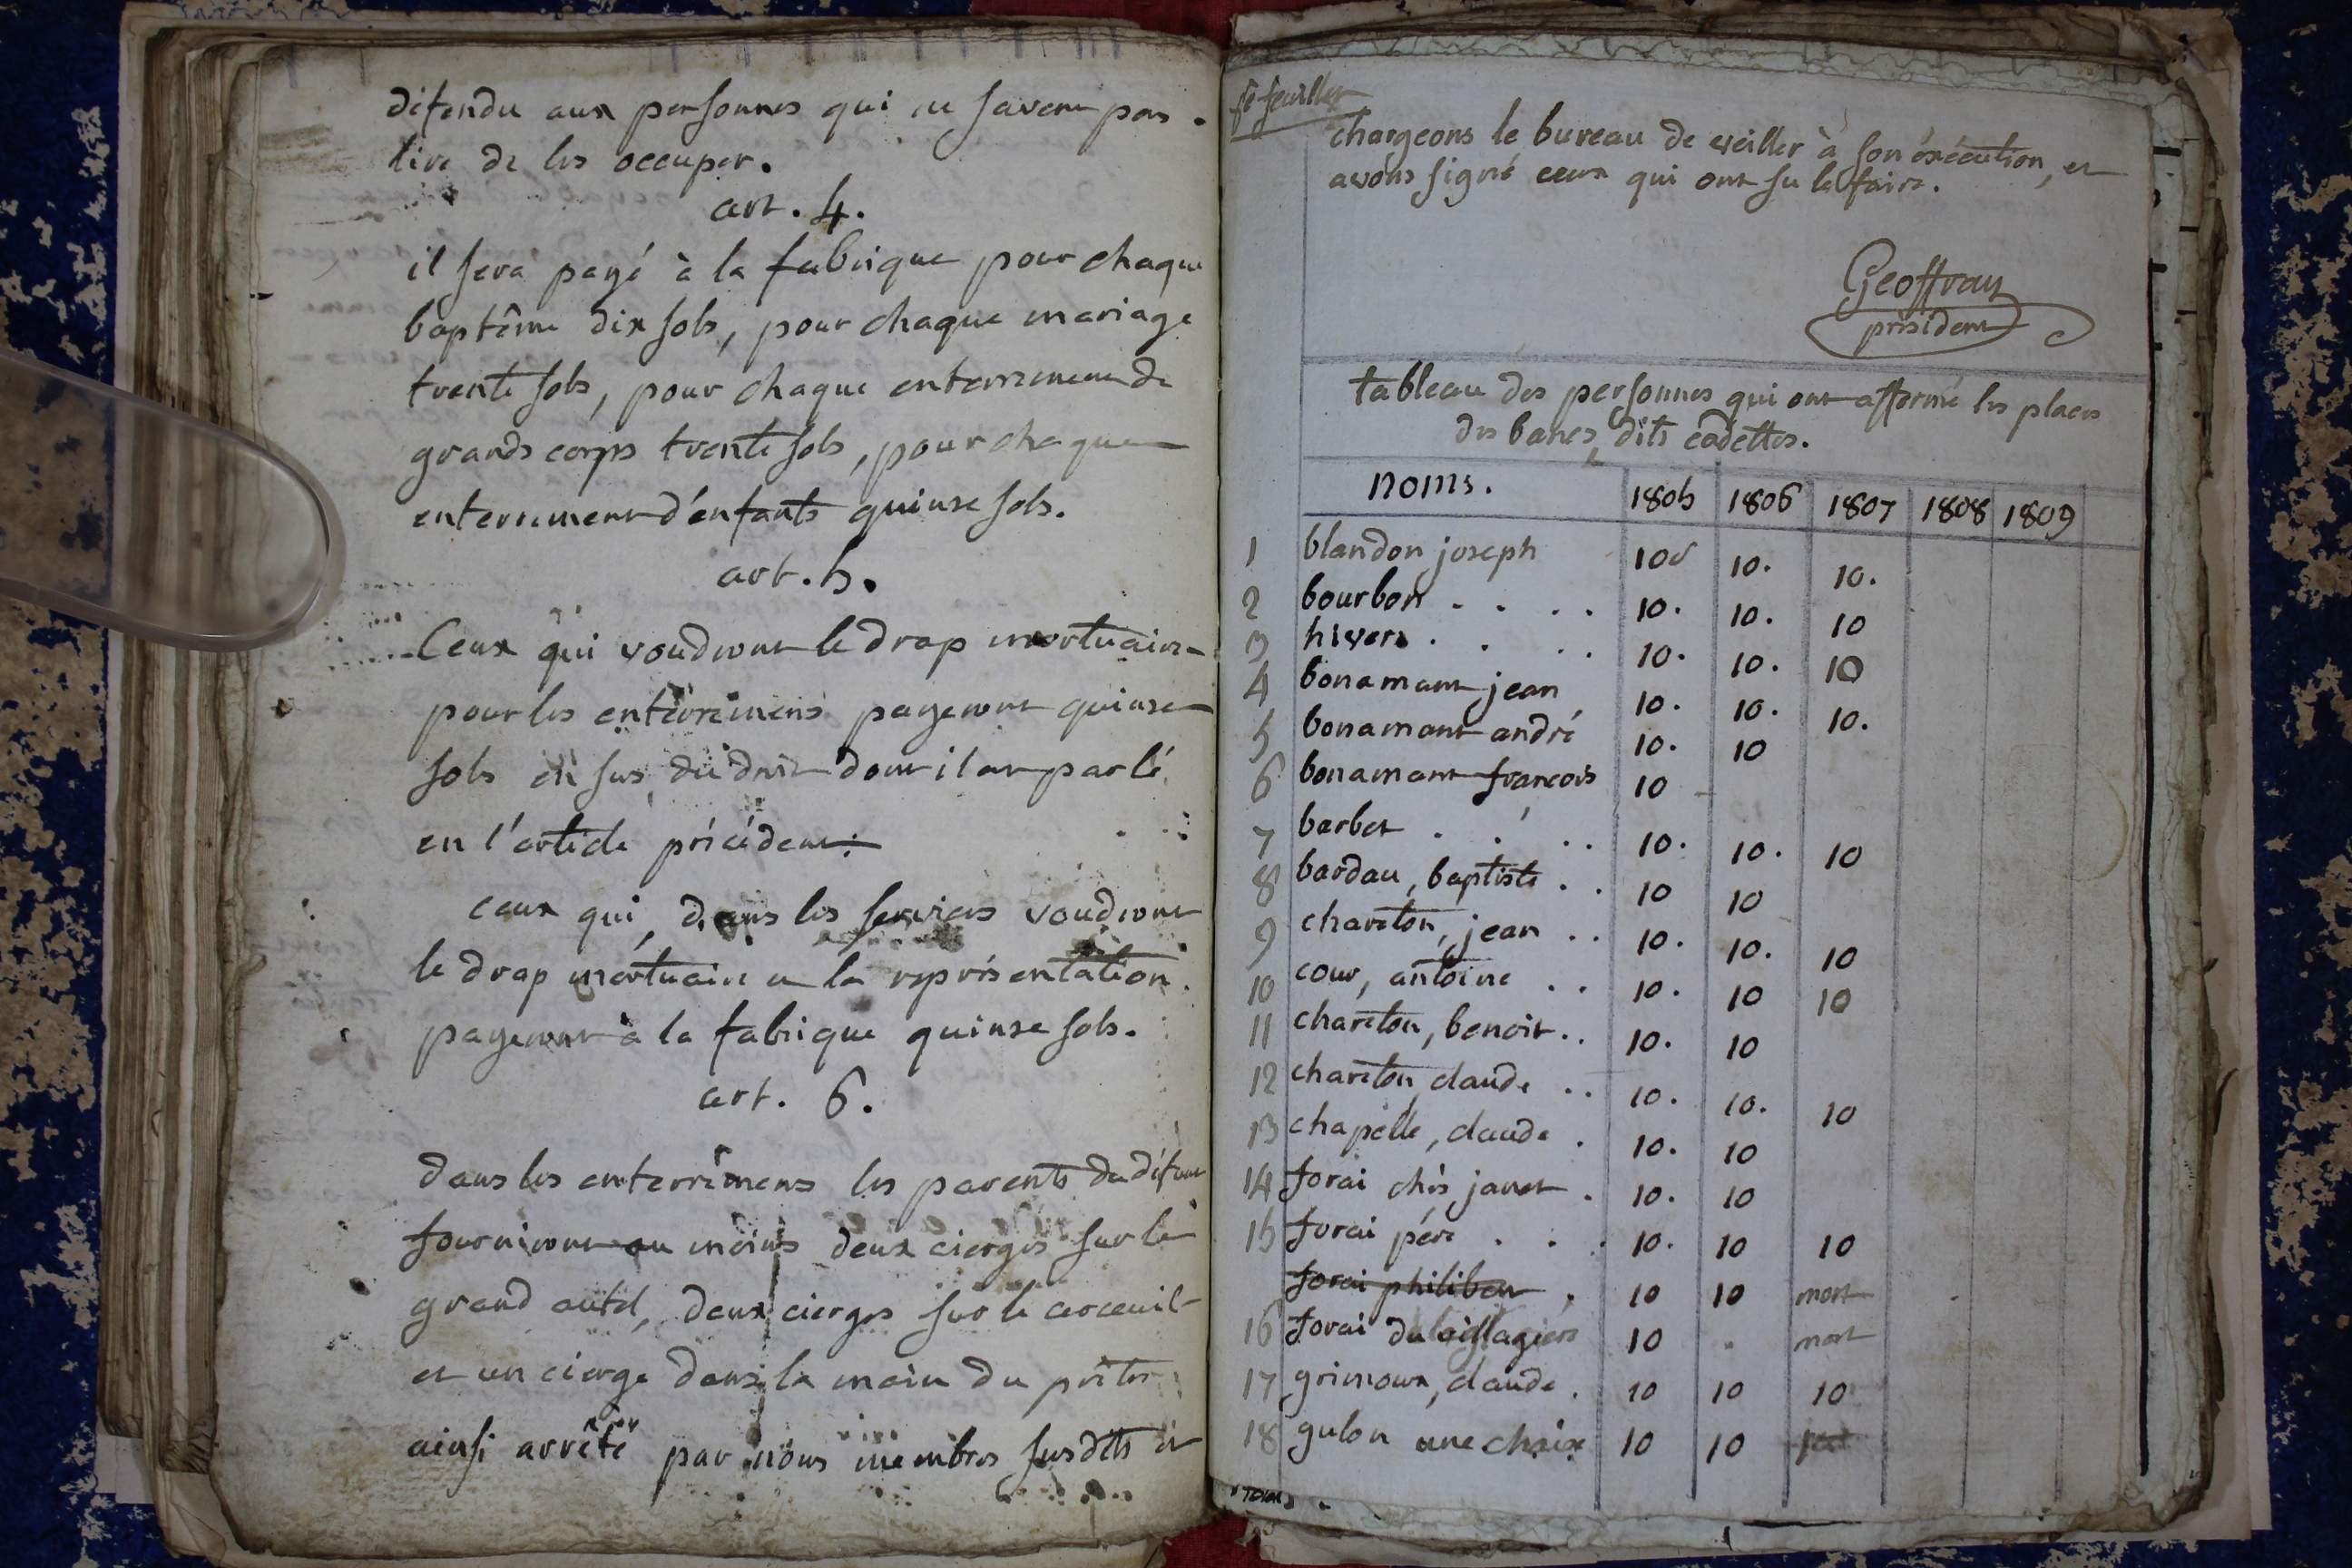 défendu aux personnes qui ne savent pas
lire de les occuper.
art. 4.
il sera payé à la fabrique pour chaque
baptême dix sols, pour chaque mariage
trente sols, pour chaque enterrement de
grands corps trente sols, pour chaque
enterrement d'enfants quinse sols.
art. 5.
Ceux qui voudront le drap mortuaire
pour les enterremens payeront quinse
sols en sus du droit dont il est parlé
en l'article précédent.
ceux qui, dans les services voudront
le drap mortuaire et la représentation
payeront à la fabrique quinse sols.
art. 6.
Dans les enterremens les parents du défunt
fourniront au moins deux cierges sur le
grand autel, deux cierges sur le cerceuil
et un cierge dans la main du prêtre
ainsi arrêté par nous membres susdits et
feuillet
chargeons le bureau de veiller à son éxécution, et
avons signé ceux qui ont su le faire.
Geoffray
président
tableau des personnes qui ont affermé les places
des bancs, dits cadettes.
noms. 1805 1806 1807 1808 1809
1 blandon joseph 10s 10. 10.
2 bourbon . . . . 10. 10. 10
3 hivert . . . . 10. 10. 10
4 bonamant jean 10. 10. 10.
5 bonamant andré 10. 10
6 bonamant francois 10
7 barbet . . . . 10. 10. 10
8 bardau, baptiste . . 10 10
9 chareton, jean . . 10. 10. 10
10 cour, antoine . . 10. 10 10
11 chareton, benoit . . 10. 10
12 chareton, claude . . 10. 10. 10
13 chapelle, claude . 10. 10
14 forai chés janet . 10. 10
15 forai pére . . . 10. 10 10
forai philibert . 10 10 mort
16 forai du 10 . mort
17 grimoux, claude . 10 10 10
18 gulon une chaise 10 10